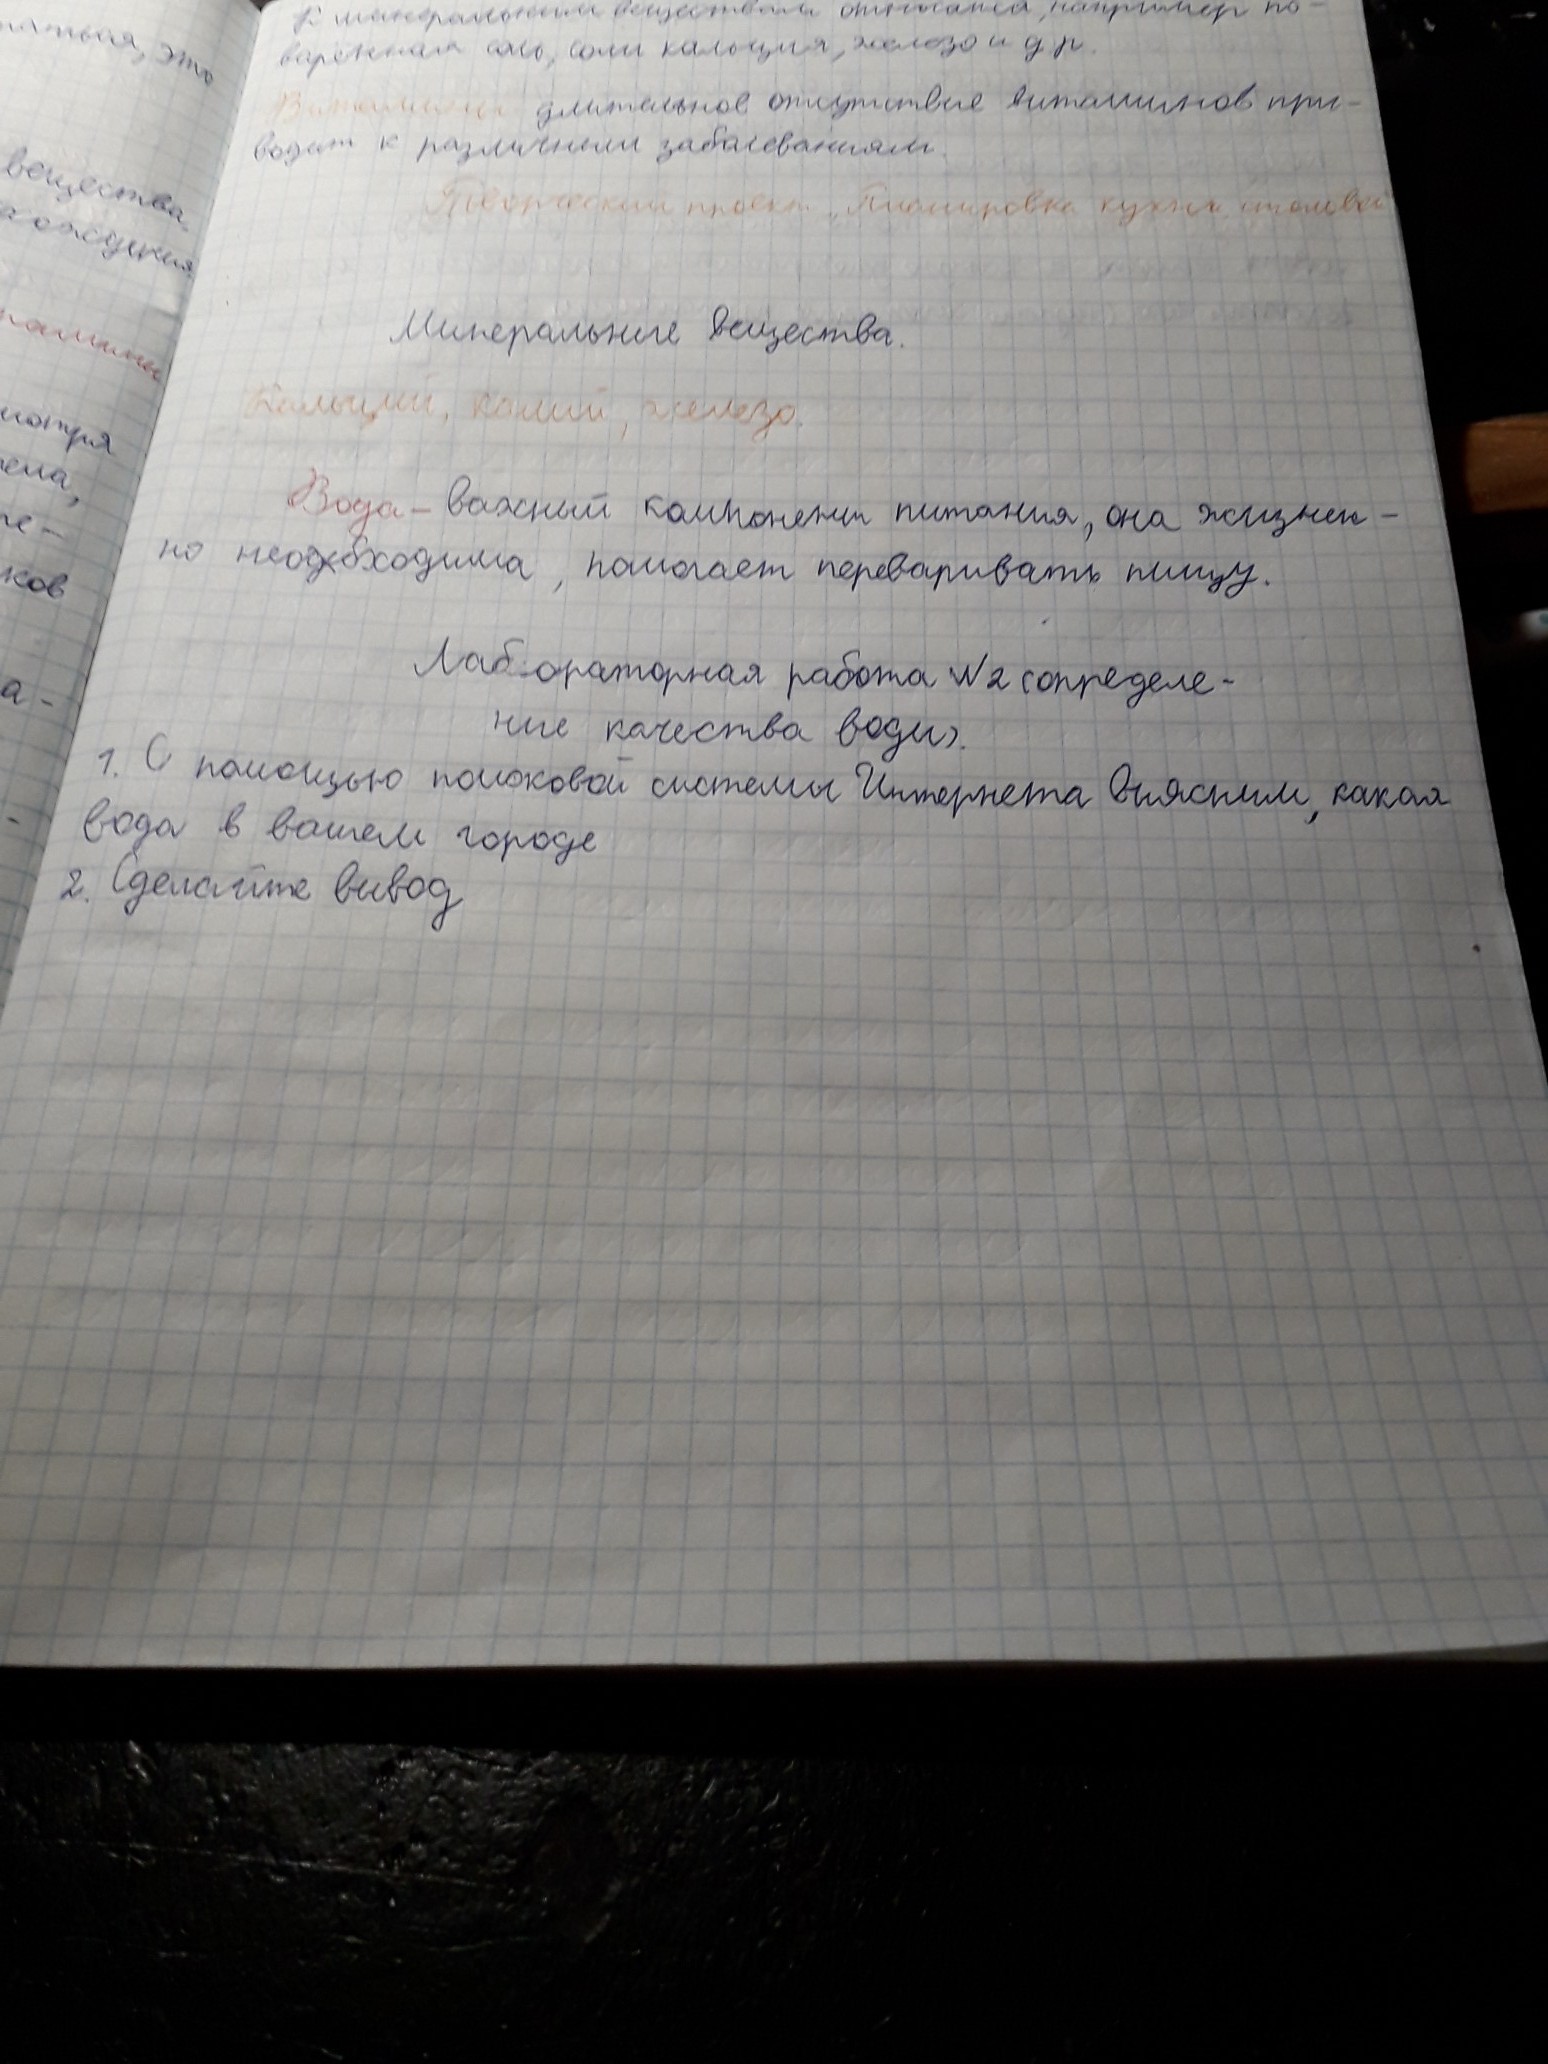 татья, это
вещества,
хождения
тамины
мотря
тела,
ков
а-
К минеральным веществам относятся, например по-
варенная соль, соли кальция, железо и др.
Витамины длительное отсутствие витаминов при-
водит к различным заболеваниям.
Творческий проект „Планировка кухни столовой
Минеральные вещества.
Кальций, калий, железо.
Вода - важный компонент питания, она жизнен-
но необходима, помогает переваривать пищу.
Лабораторная работа №2 «определе-
ние качества воды».
1. С помощью поисковой системы Интернета выясним, какая
вода в вашем городе
2. Сделайте вывод